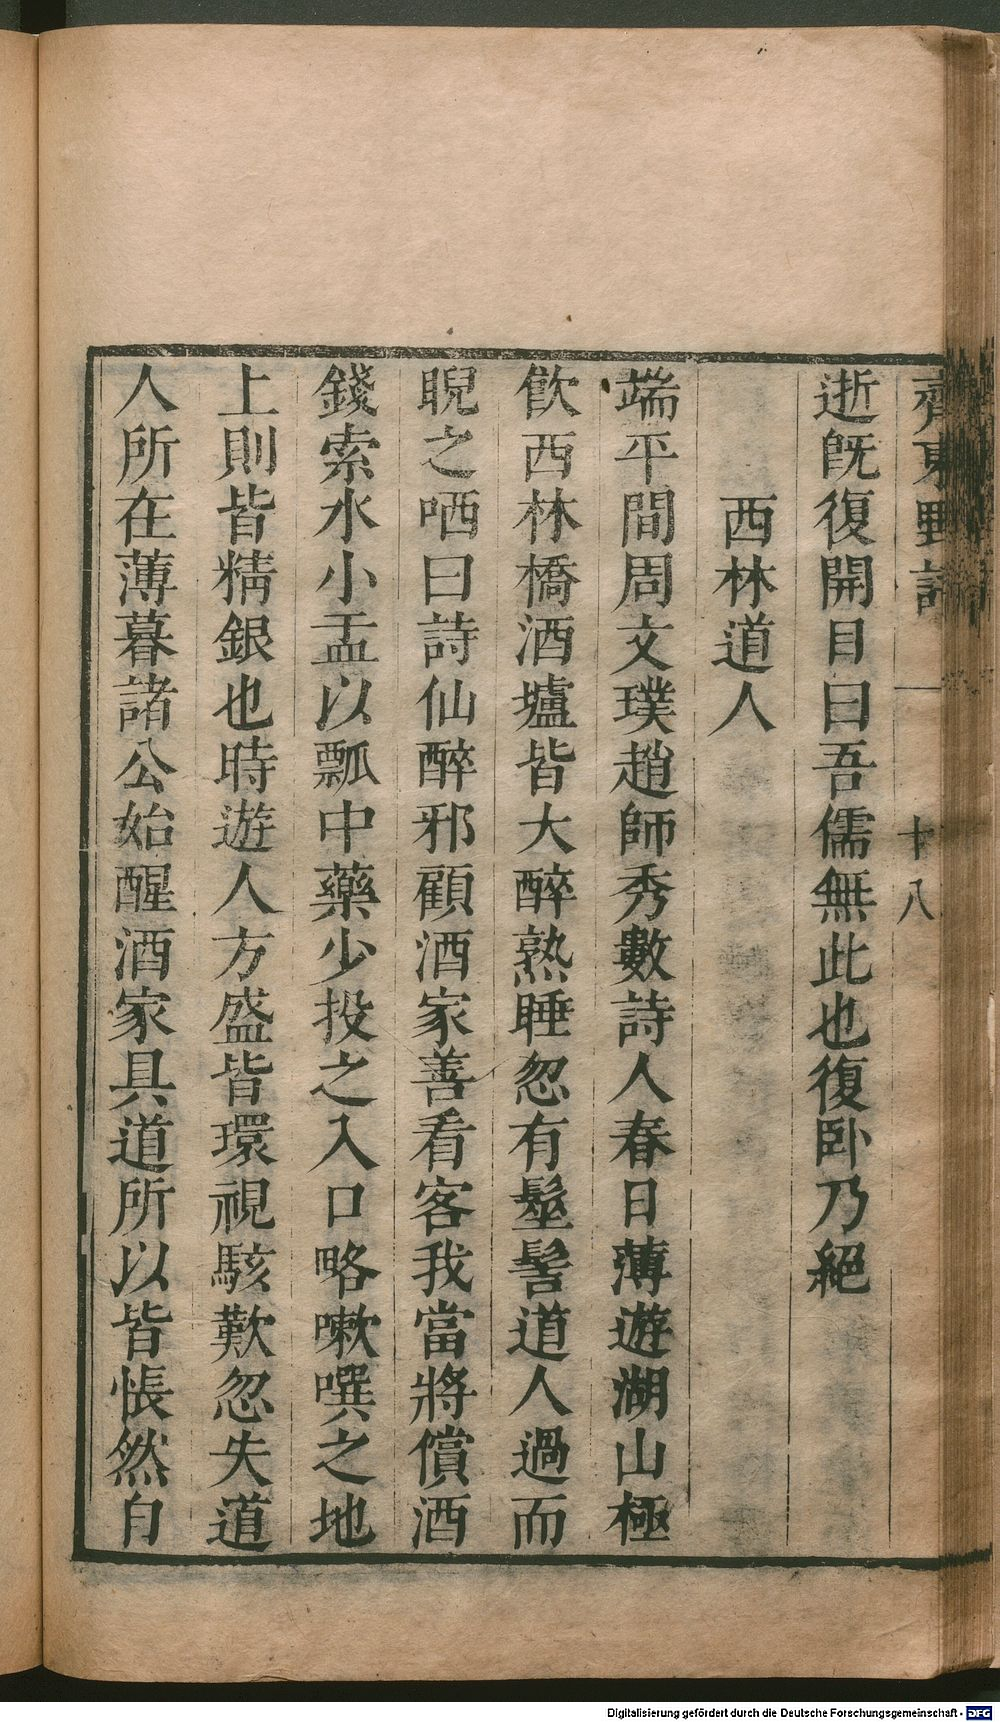 齊東野語
十八
逝旣復開目曰吾儒無此也復臥乃絕
西林道人
端平間周文璞趙師秀數詩人春日薄遊湖山極
飮西林橋酒壚皆大醉熟睡忽有髽髻道人過而
睨之哂曰詩仙醉邪顧酒家善看客我當將償酒
錢索水小盂以瓢中藥少投之入口略嗽噀之地
上則皆精銀也時遊人方盛皆環視駭歎忽失道
人所在薄暮諸公始醒酒家具道所以皆悵然自
Digitalisierung gefördert durch die Deutsche Forschungsgemeinschaft - DFG